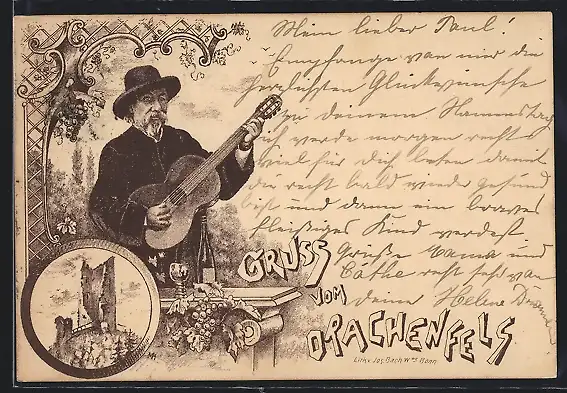 Mein lieber Paul!
Empfange von mir die
herzlichsten Glückwünsche
zu deinem Namenstag
ich werde morgen recht
viel für dich beten damit
du recht bald wieder gesund
bist und dann ein braves
fleißiges Kind werdest
Grüße Mama und
Käthe recht fest von
deine Helene
GRUSS
VOM
DRACHENFELS
Lith. v. Jos. Bach Wwe Bonn